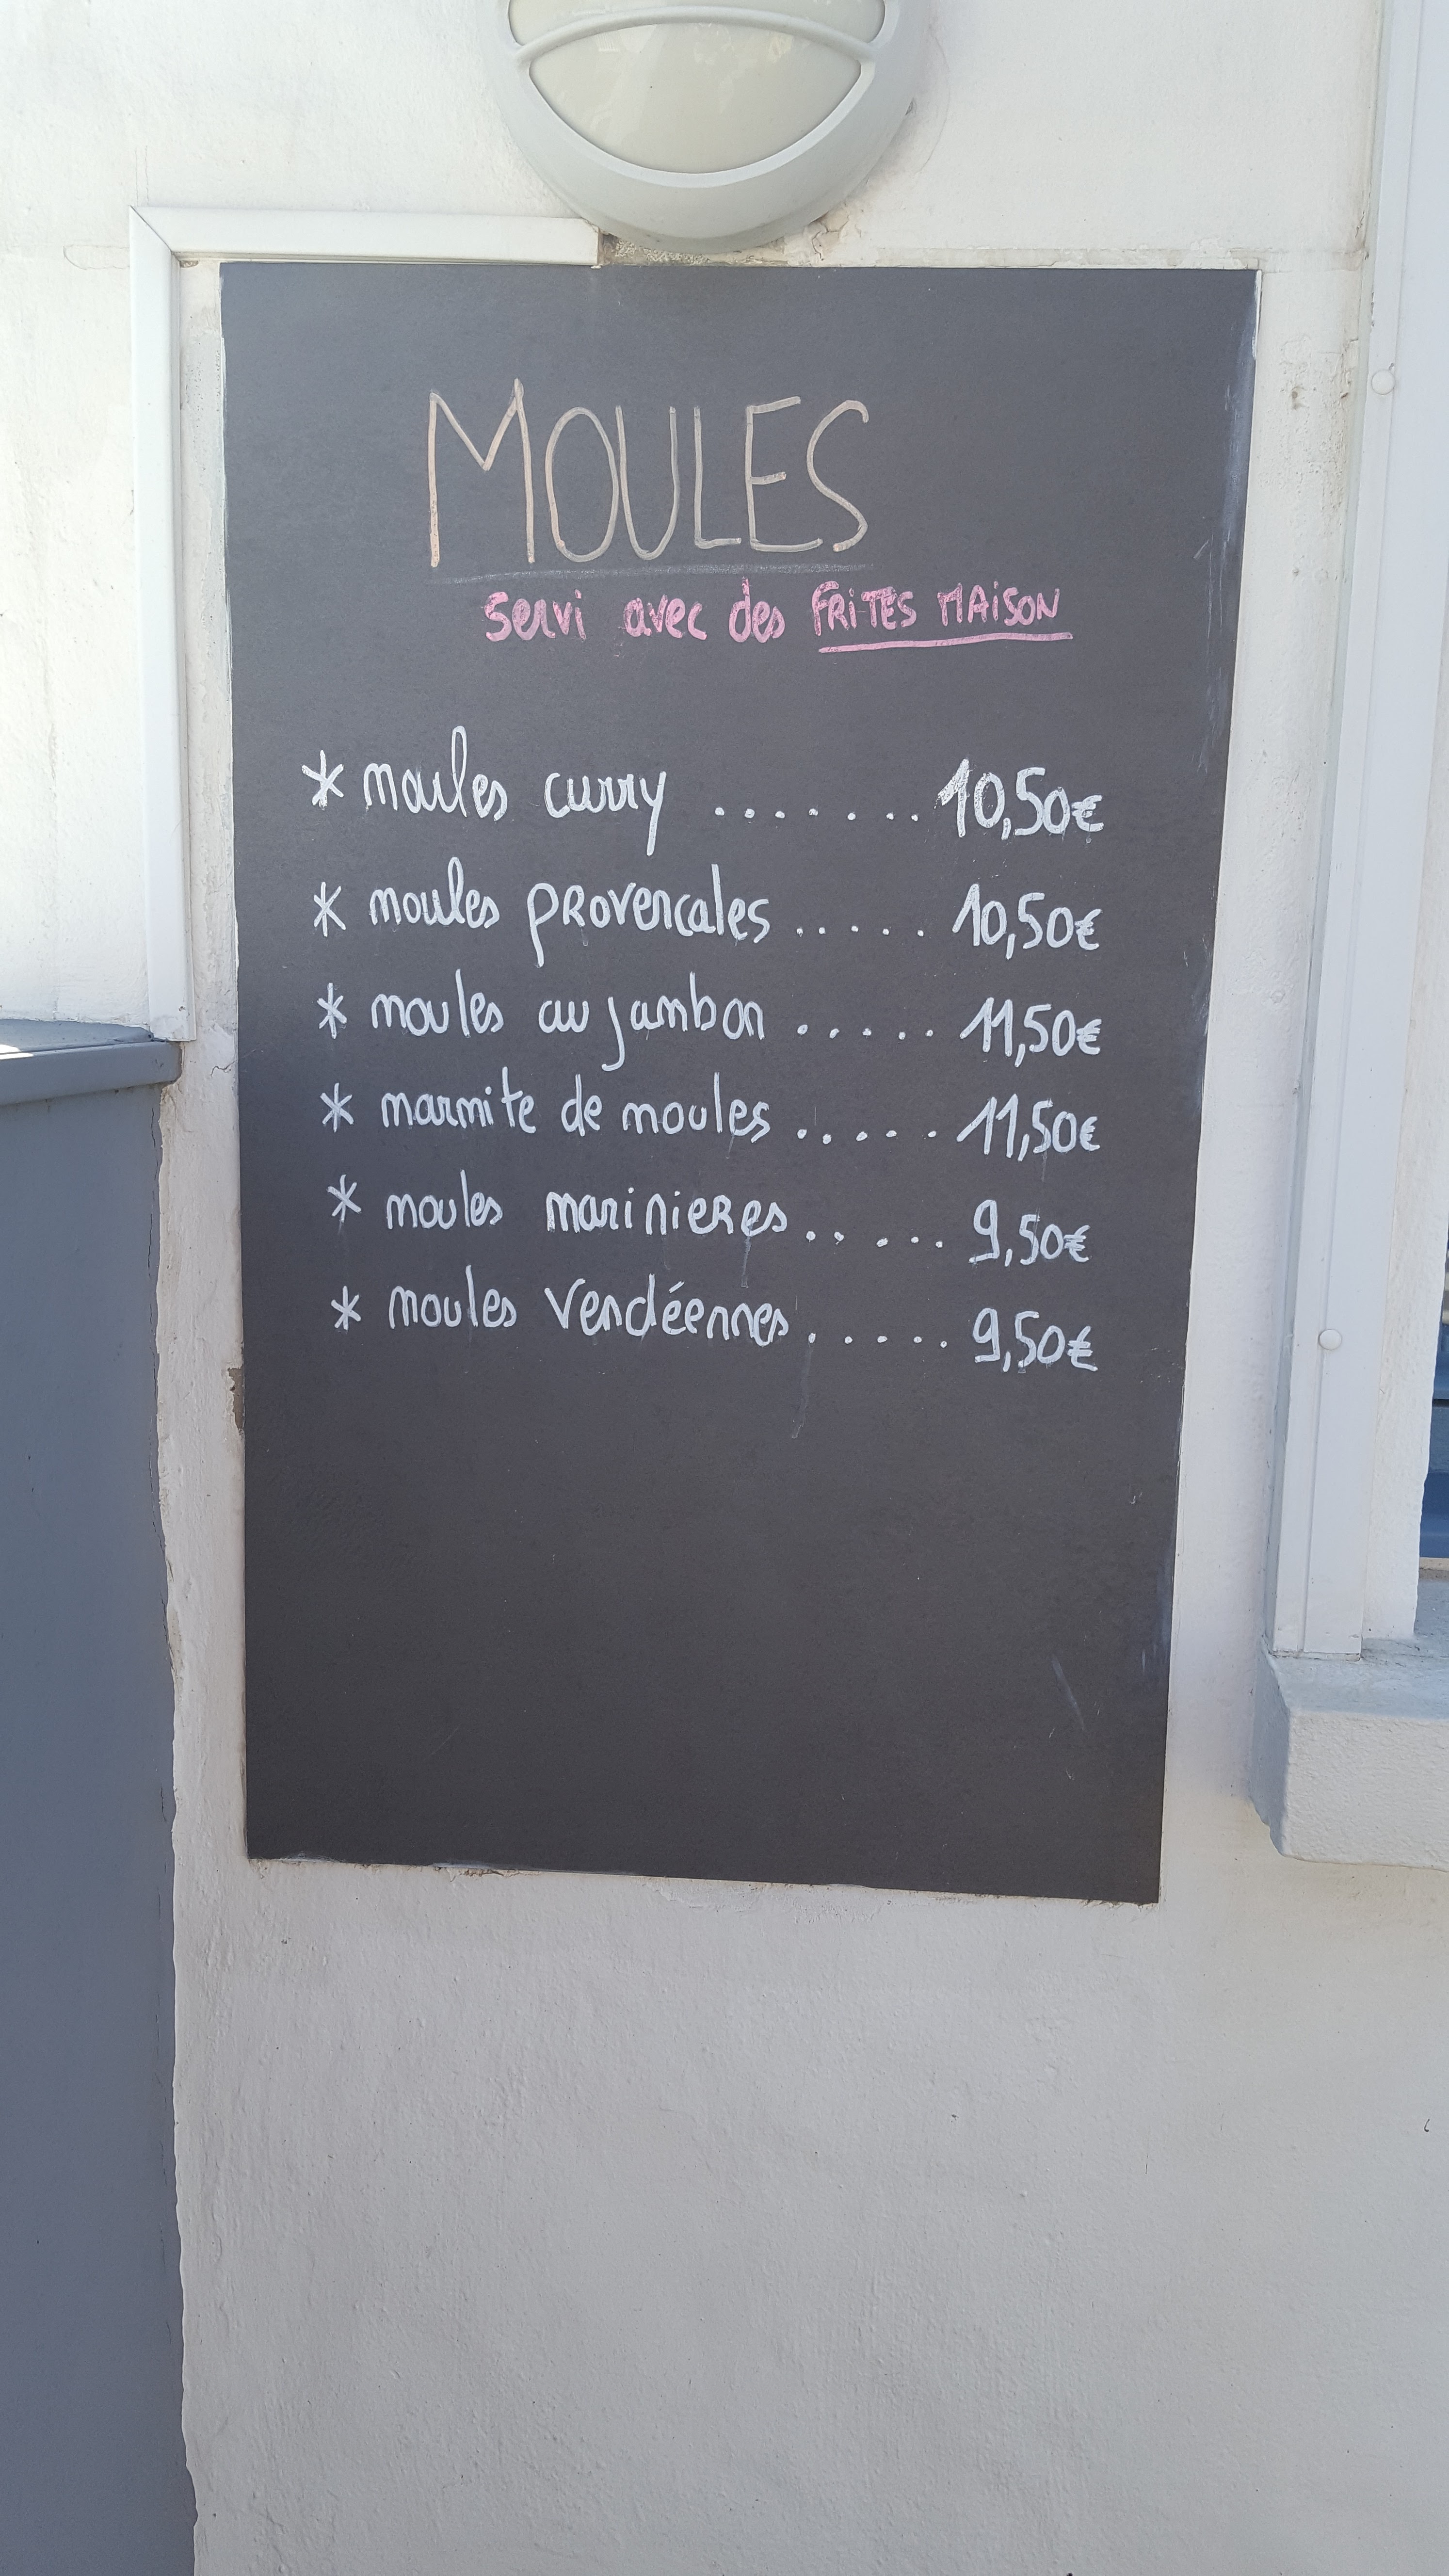 MOULES
servi avec des FRITES MAISON
* moules curry ........ 10,50€
* moules provencales ..... 10,50€
* moules au jambon ..... 11,50€
* marmite de moules ..... 11,50€
* moules marinieres ..... 9,50€
* moules vendéennes ..... 9,50€